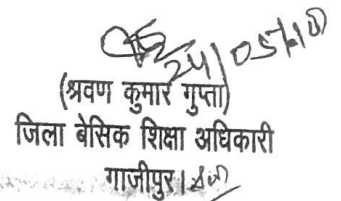 24/05/10
(श्रवण कुमार गुप्ता)
जिला बेसिक शिक्षा अधिकारी
गाजीपुर।